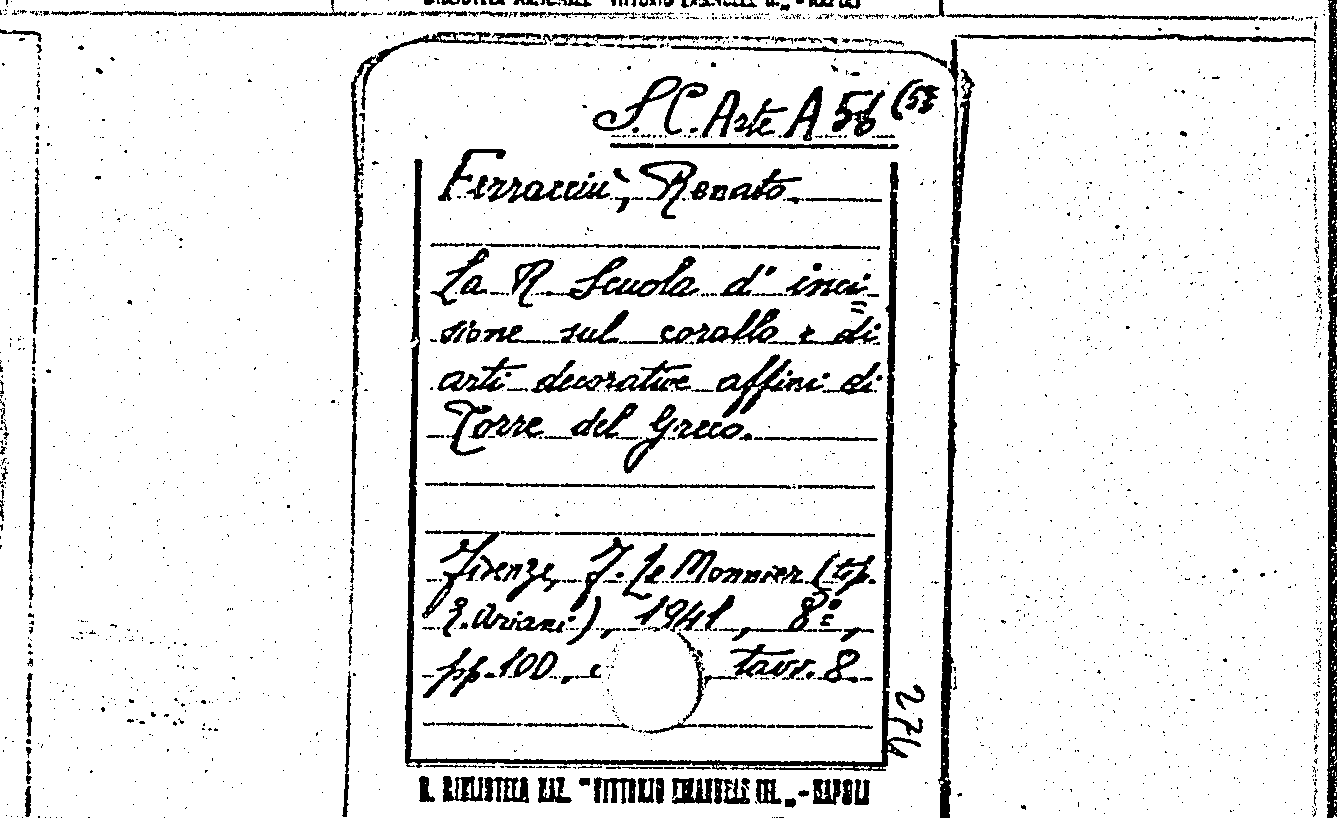 BIBLIOTECA NAZIONALE "VITTORIO EMANUELE III„ - NAPOLI
S. C. Arte A 56 (57
Ferracciù, Renato.
La R. Scuola d' inci
sione sul corallo e di
arti decorative affini di
Torre del Greco.
Firenze, F. Le Monnier (tip.
E. Ariani), 1941, 8º,
pp. 100, c , tavv. 8.
274
R. BIBLIOTECA NAZ. "VITTORIO EMANUELE III„ - NAPOLI